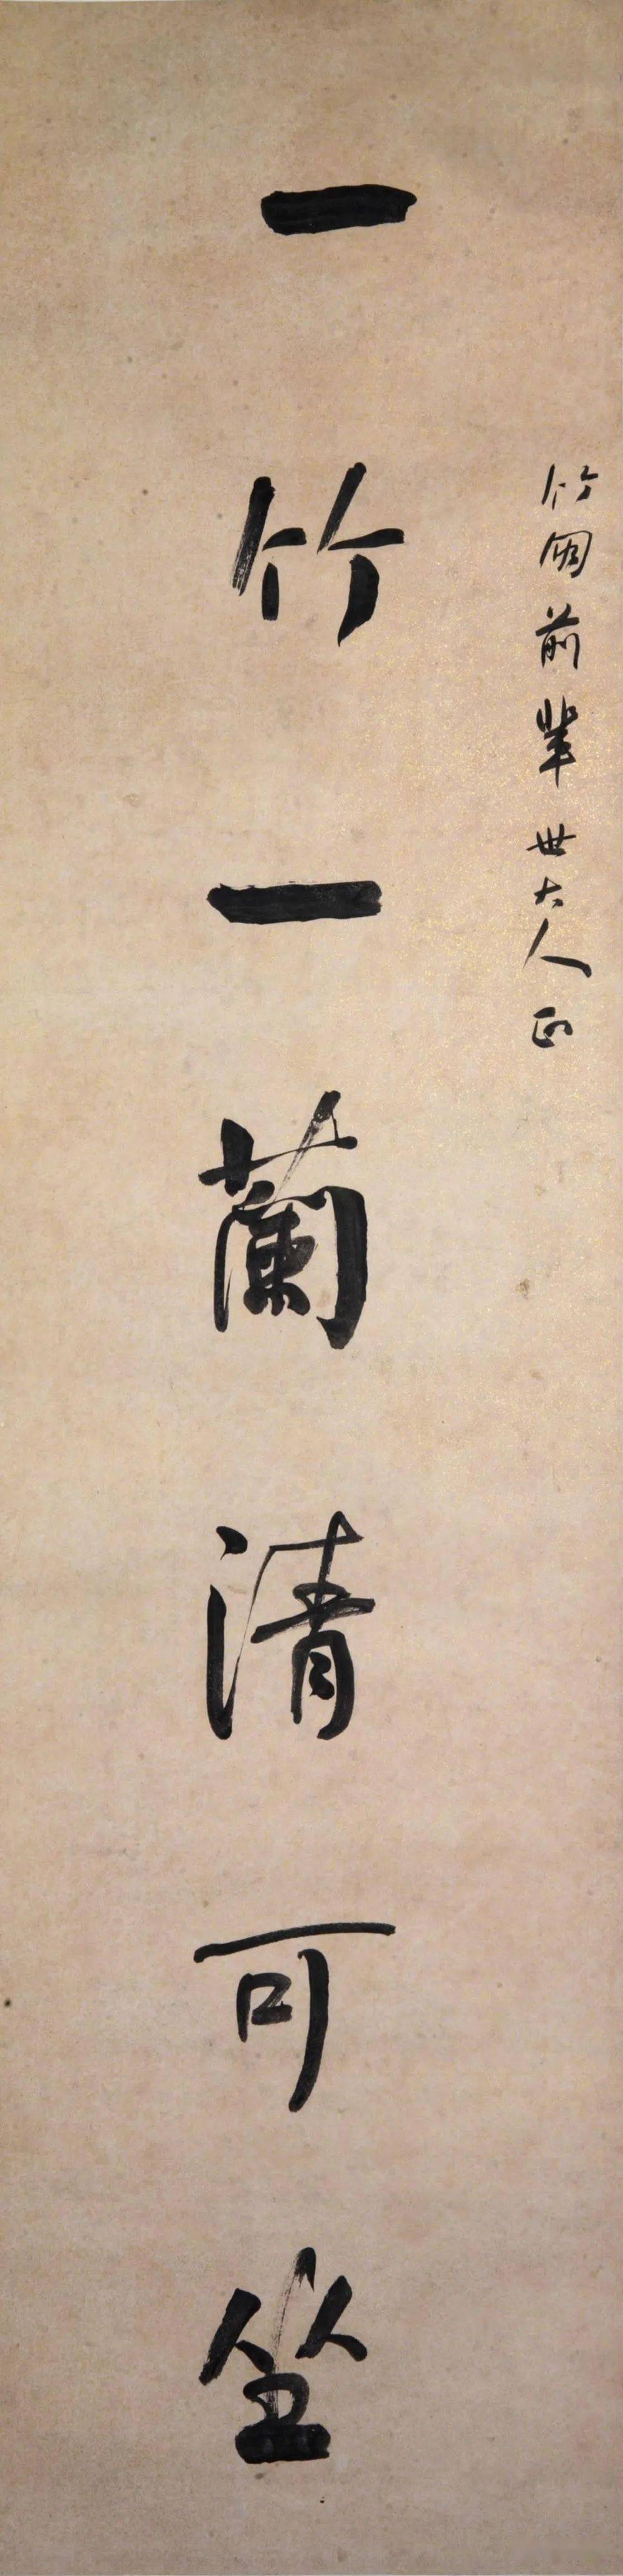 竹朋前輩世大人正
一竹一蘭清可坐